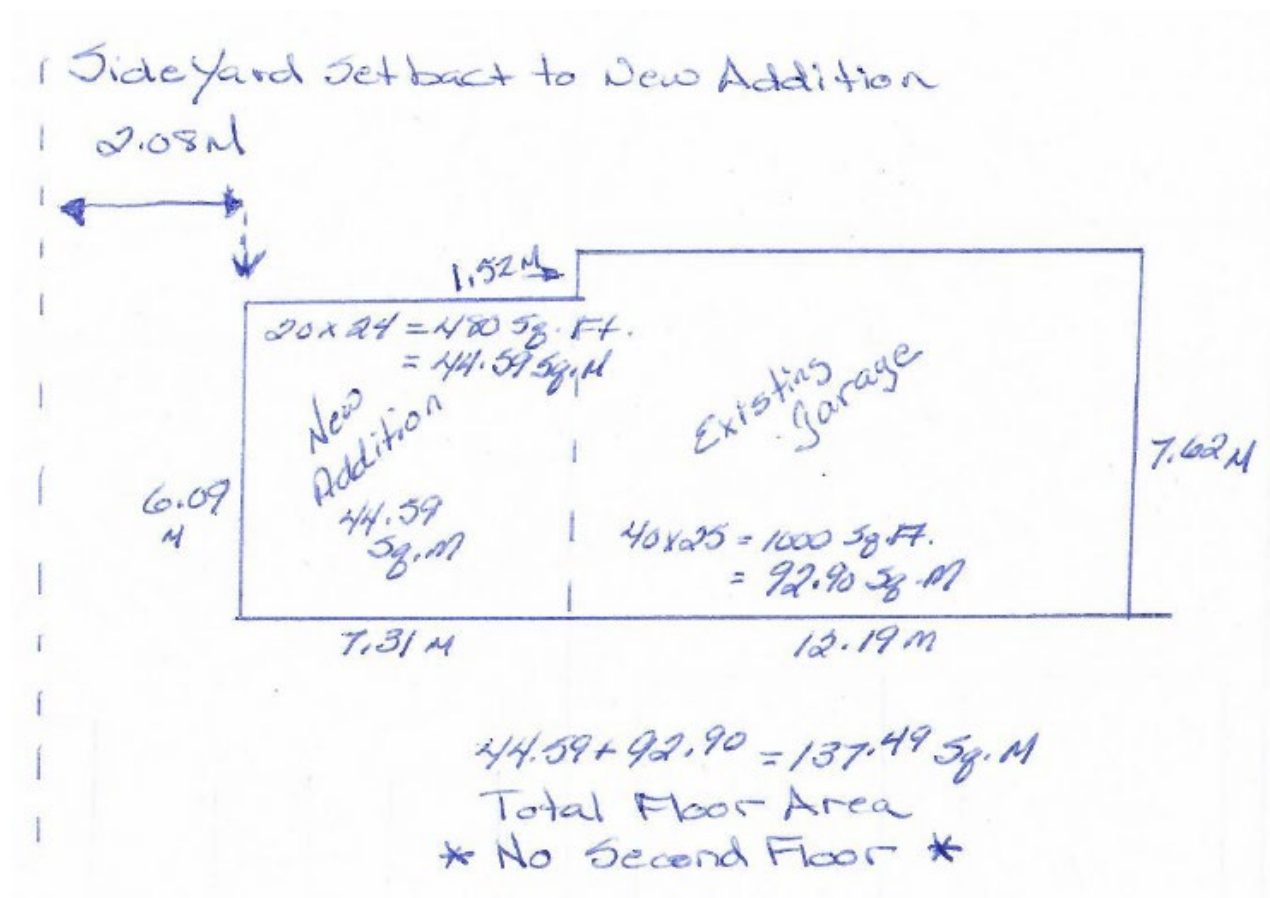 Side Yard Setbact to New Addition
2.08M
1.52M
20x24 = 480 Sq. Ft.
= 44.59 Sq.M
New
Addition
44.59
Sq.M
Existing
Garage
7.62 M
6.09
M
40x25 = 1000 Sq.Ft.
= 92.90 Sq.M
7.31 M
12.19 M
44.59 + 92.90 = 137.49 Sq.M
Total Floor Area
* No Second Floor *